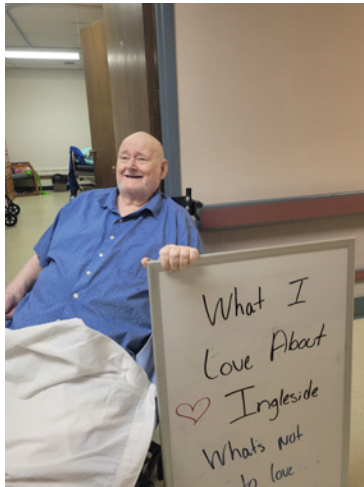 What I
Love About
Ingleside
Whats not
to love